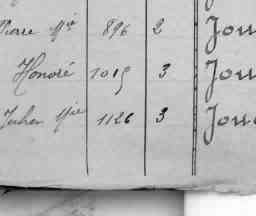 Pierre Mie 896 2 Jou
Honoré 1019 3 Jou
Julien Mie 1126 3 Jou